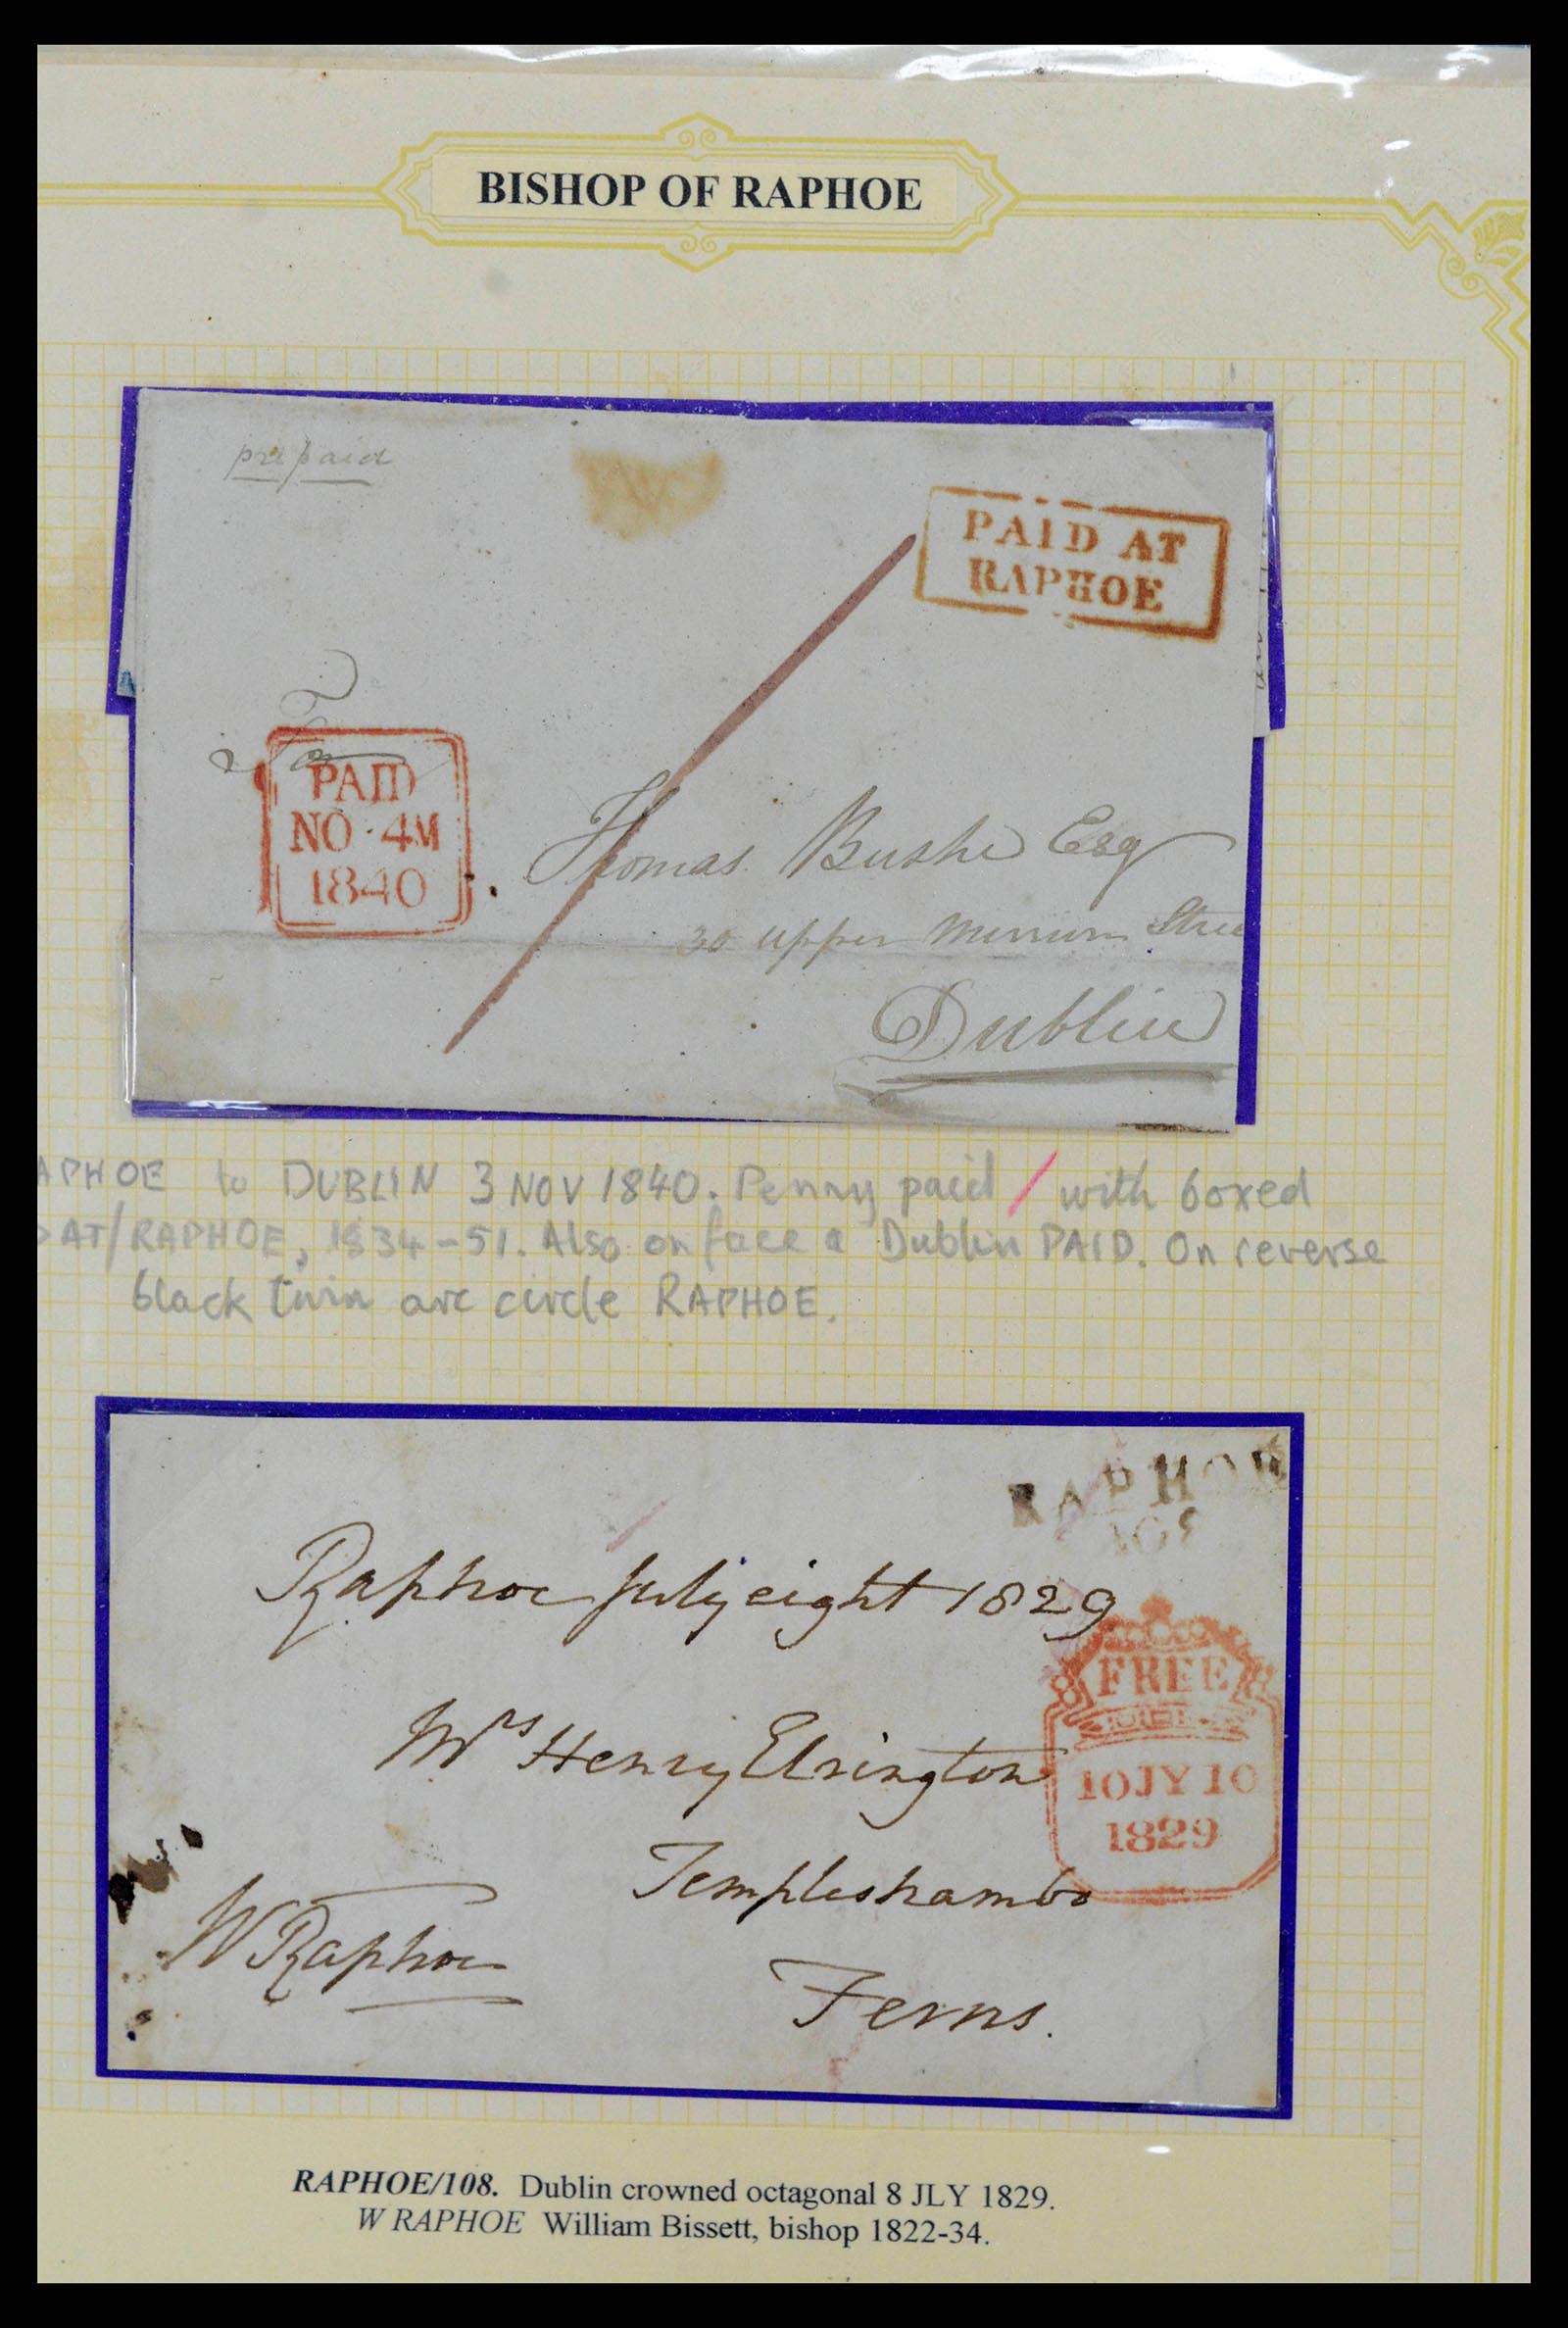 BISHOP OF RAPHOE
prepaid
PAID AT
RAPHOE
To
PAID
NO 4M
1840
Thomas Bushe Esq
30 Upper Merrion Stree
Dublin
APHOE to DUBLIN 3 NOV 1840. Penny paid / with boxed
AT/RAPHOE, 1834-51. Also on face a Dublin PAID. On reverse
black twin arc circle RAPHOE.
RAPHOE
108
Raphoe July eight 1829
FREE
10 JY 10
1829
Mrs Henry Elrington
Templeshambo
W Raphoe
Ferns.
RAPHOE/108. Dublin crowned octagonal 8 JLY 1829.
W RAPHOE William Bissett, bishop 1822-34.